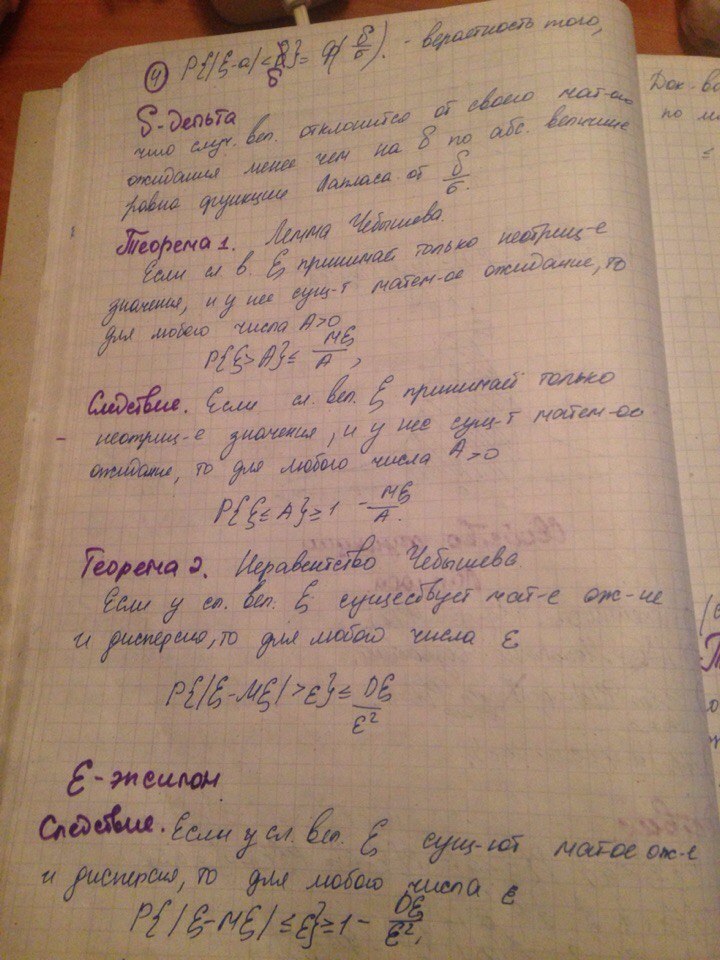 ④ P{|ξ-a|<δ}= Ф(δ/σ). - вероятность того,
δ-дельта
что случ. вел. отклонится от своего мат-ого
ожидания менее чем на δ по абс. величине
равна функции Лапласа от δ/σ.
Теорема 1. Лемма Чебышева.
Если сл. в. ξ принимает только неотриц-е
значения, и у нее сущ-т матем-ое ожидание, то
для любого числа A>0
P{ξ>A}≤ Mξ/A,
Следствие. Если сл. вел. ξ принимает только
неотриц-е значения, и у нее сущ-т матем-ое
ожидание, то для любого числа A>0
P{ξ≤A}≥1 - Mξ/A.
Теорема 2. Неравенство Чебышева.
Если у сл. вел. ξ существует мат-е ож-ие
и дисперсия, то для любого числа ε
P{|ξ-Mξ|>ε}≤ Dξ/ε²
ε-эксилон
Следствие. Если у сл. вел. ξ сущ-ют матое ож-е
и дисперсия, то для любого числа ε
P{|ξ-Mξ|≤ε}≥1- Dξ/ε².
Док-во
по
≤